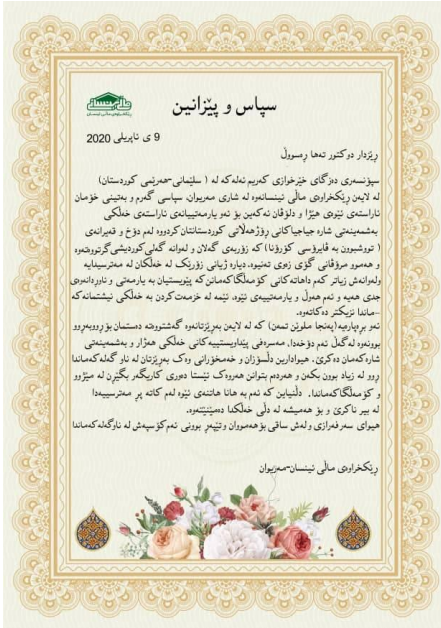 سپاس و پێزانین
9 ی ئاپریلی 2020
ڕێزدار دوکتور تەها ڕەسووڵ
سپۆنسەری دەزگای خێرخوازی کەریم ئەلەکە لە ( سلێمانی-هەرێمی کوردستان)
لە لایەن ڕێکخراوەی ماڵی ئینسانەوە لە شاری مەریوان، سپاسی گەرم و بەتینی خۆمان
ئاراستەی ئێوەی هێژا و دلۆڤان ئەکەین بۆ ئەو یارمەتییانەی ئاراستەی خەڵکی
بەشمەینەتی شارە جیاجیاکانی ڕۆژهەڵاتی کوردستانتان کردووە لەم دۆخ و قەیرانەی
( تووشبوون بە ڤایرۆسی کۆرۆنا) کە زۆربەی گەلان و لەوانە گەلی کوردیشی گرتووەتەوە
و هەموو مرۆڤانی گۆی زەوی تەنیوە، دیارە ژیانی زۆرێک لە خەڵکان لە مەترسیدایە
ولەوانەش زیاتر کەم داهاتەکانی کۆمەڵگاکەمانن کە پێویستیان بە یارمەتی و ئاوڕدانەوەی
جدی هەیە و ئەم هەوڵ و یارمەتییەی ئێوە، ئێمە لە خزمەت کردن بە خەڵکی نیشتمانەکە
-ماندا نزیکتر دەکاتەوە.
ئەو بڕەپارەیە(پەنجا ملوێن تمەن) کە لە لایەن بەڕێزتانەوە گەشتووەتە دەستمان بۆ ڕووبەڕوو
بوونەوە لەگەڵ ئەم دۆخەدا، مەسرەفی پێداویستییەکانی خەڵکی هەژار و بەشمەینەتی
شارەکەمان دەکرێ. هیوادارین دڵسۆزان و خەمخۆرانی وەک بەڕێزتان لە ناو گەلەکەماندا
ڕوو لە زیاد بوون بکەن و هەردەم بتوانن هەروەک ئێستا دەوری کاریگەر بگێڕن لە مێژوو
و کۆمەڵگاکەماندا. دڵنیاین کە ئەم بە هانا هاتنەی ئێوە لەم کاتە پڕ مەترسییەدا
لە بیر ناکرێ و بۆ هەمیشە لە دڵی خەڵکدا دەمێنێتەوە.
هیوای سەرفەرازی ولەش ساقی بۆهەمووان وتێپەڕ بوونی ئەم کۆسپەش لە ناوگەلەکەماندا
ڕێکخراوەی ماڵی ئینسان-مەریوان